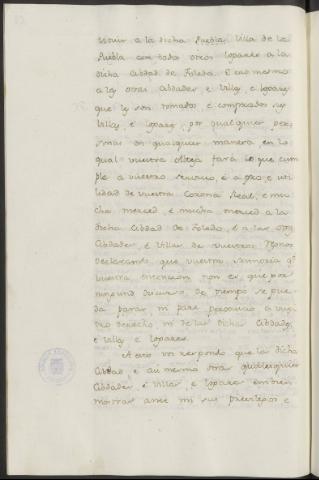 tornar a la dicha Puebla, Villa de la
Puebla con todos otros logares a la
dicha Cibdad de Toledo. E eso mesmo
a las otras Cibdades, e Villas, e logares
que les son tomados e comprados sus
Villas, e logares, por qualquier per-
sonas en qualquier manera, en lo
qual vuestra alteza fará lo que cum-
ple a vuestro servicio, e a pro e uti-
lidad de vuestra Corona Real, e mu-
cha merced, e mucha merced a la
dicha Cibdad de Toledo, e a las otras
Cibdades, e Villas de vuestros Regnos
declarando que vuestra Señoria
vuestra entencion non es, que por
ningund discurso de tiempo se pue-
da parar ni pare perjuicio a vues-
tro derecho, ni de las dichas Cibdades,
e Villas e logares.
A esto vos respondo que la dicha
Cibdad, e asi mesmo otras qualesquier
Cibdades, e Villas, e logares embien
mostrar ante mi sus privilegios e